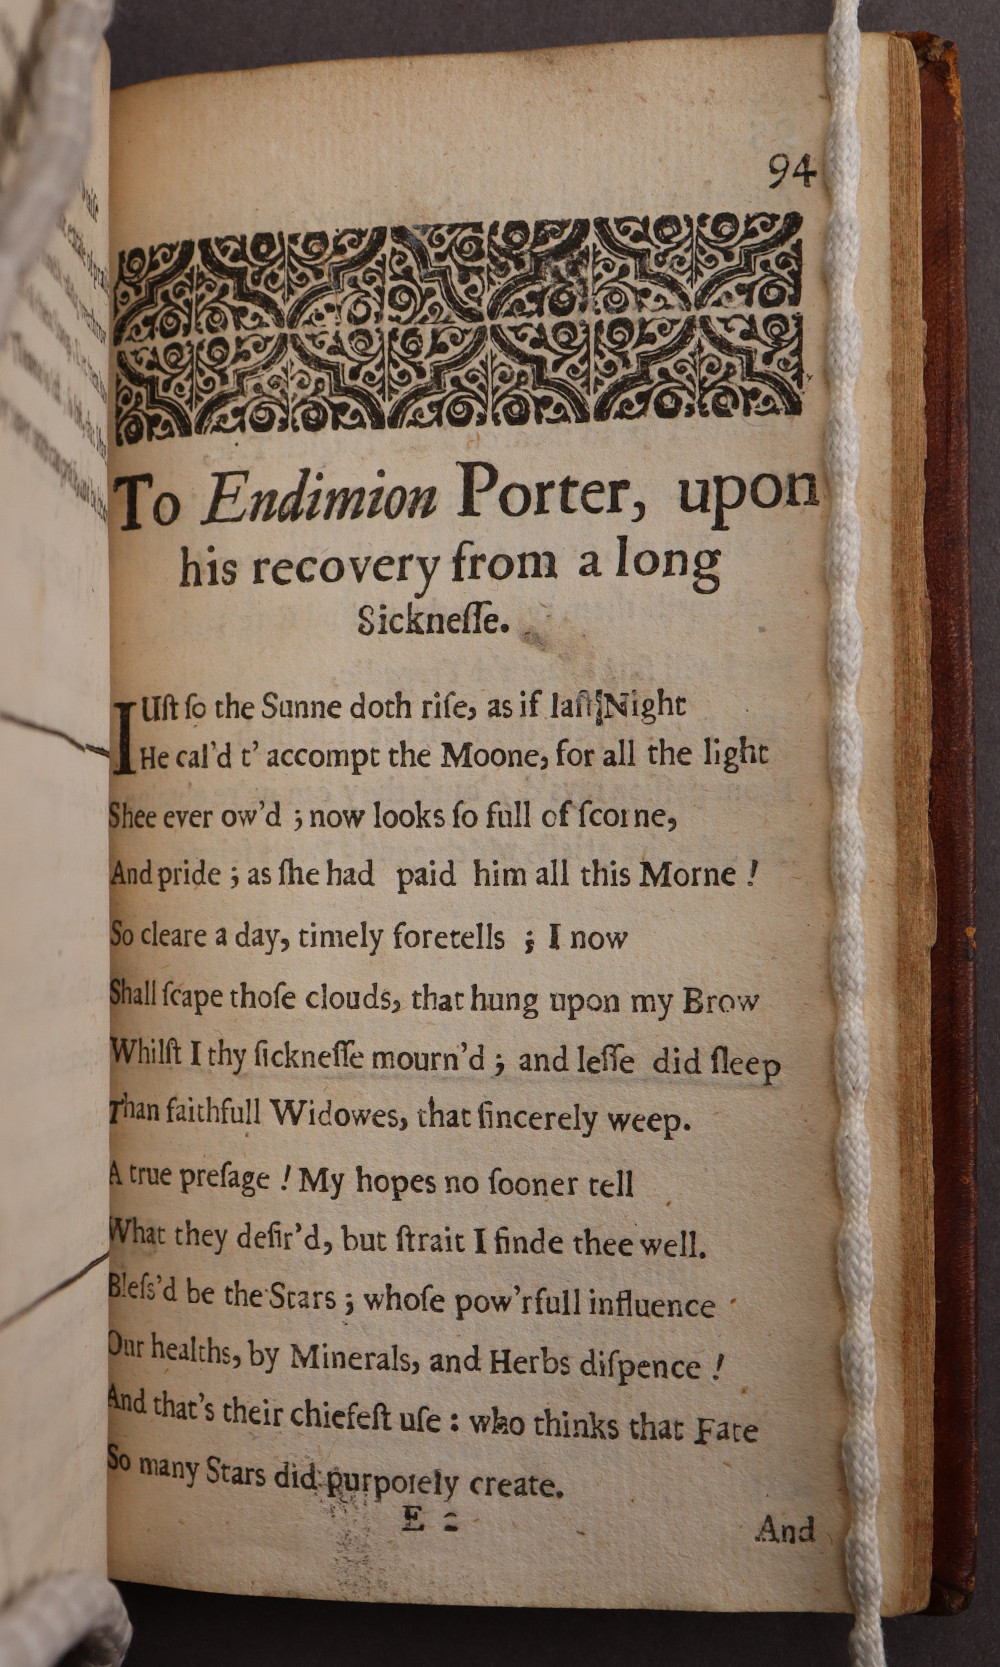 94
To Endimion Porter, upon
his recovery from a long
Sickneſſe.
IUſt ſo the Sunne doth riſe, as if laſt Night
He cal'd t' accompt the Moone, for all the light
Shee ever ow'd ; now looks ſo full of ſcorne,
And pride ; as ſhe had paid him all this Morne !
So cleare a day, timely foretells ; I now
Shall ſcape thoſe clouds, that hung upon my Brow
Whilſt I thy ſickneſſe mourn'd ; and leſſe did ſleep
Than faithfull Widowes, that ſincerely weep.
A true preſage ! My hopes no ſooner tell
What they deſir'd, but ſtrait I finde thee well.
Bleſs'd be the Stars ; whoſe pow'rfull influence
Our healths, by Minerals, and Herbs diſpence !
And that's their chiefeſt uſe : who thinks that Fate
So many Stars did purpoſely create.
E 2
And